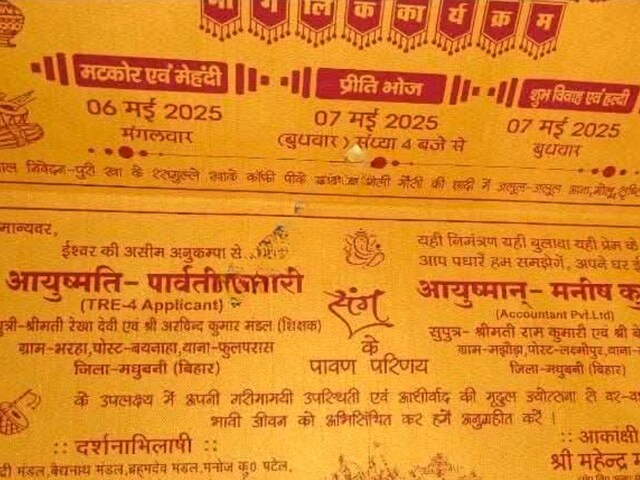 मांगलिक कार्यक्रम
मटकोर एवं मेहंदी
06 मई 2025
मंगलवार
प्रीति भोज
07 मई 2025
(बुधवार) संध्या 4 बजे से
शुभ विवाह एवं हल्दी
07 मई 2025
बुधवार
निवेदन-पुरी खा के रसगुल्ले खाके कॉफी पीके मौसी की शादी में जलूल-जलूल आना,
मान्यवर,
ईश्वर की असीम अनुकम्पा से
आयुष्मति- पार्वती कुमारी
(TRE-4 Applicant)
सुपुत्री-श्रीमती रेखा देवी एवं श्री अरविन्द कुमार मंडल (शिक्षक)
ग्राम-भरहा,पोस्ट-बथनाहा,थाना-फुलपरास
जिला-मधुबनी (बिहार)
संग
के
पावण परिणय
यही निमंत्रण यही बुलावा यही प्रेम के
आप पधारें हम समझेगें, अपने घर
आयुष्मान्- मनीष
(Accountant Pvt.Ltd)
सुपुत्र- श्रीमती राम कुमारी एवं श्री
ग्राम-मझौड़ा,पोस्ट-लक्ष्मीपुर,थाना-
जिला-मधुबनी (बिहार)
के उपलक्ष्य में अपनी गरीमामयी उपस्थिती एवं आशीर्वाद की मृदुल ज्योत्सना से वर-
भावी जीवन को अभिसिंचित कर हमें अनुग्रहीत करें !
:: दर्शनाभिलाषी ::
मंडल,बैद्यनाथ मंडल,ब्रहमदेव मंडल,मनोज कु० पटेल,
:: आकांक्षी
श्री महेन्द्र